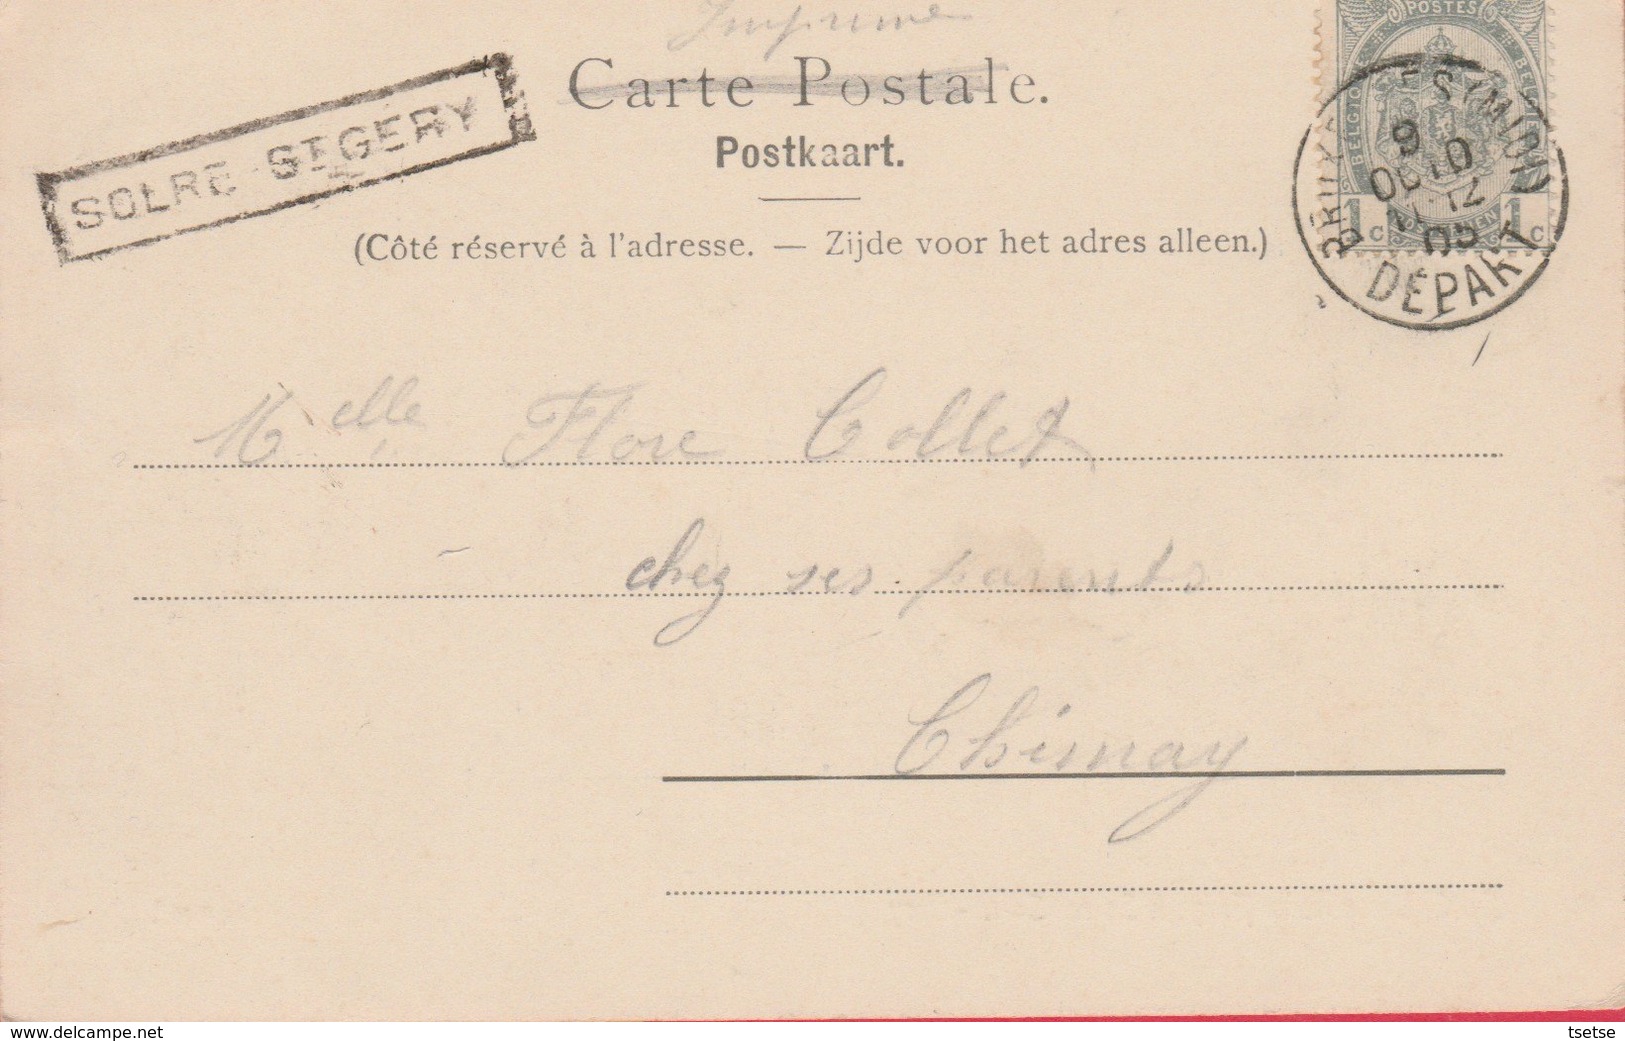 Imprimé
POSTES
Carte Postale.
SOLRE-ST GERY
Postkaart.
BELGIQUE
BELGIE
(MIDI)
9
OCTO
05
DÉPART
1 C 1 C
(Côté réservé à l'adresse. — Zijde voor het adres alleen.)
Melle Flore Collet
chez ses parents
Chimay
www.delcampe.net
tsetse